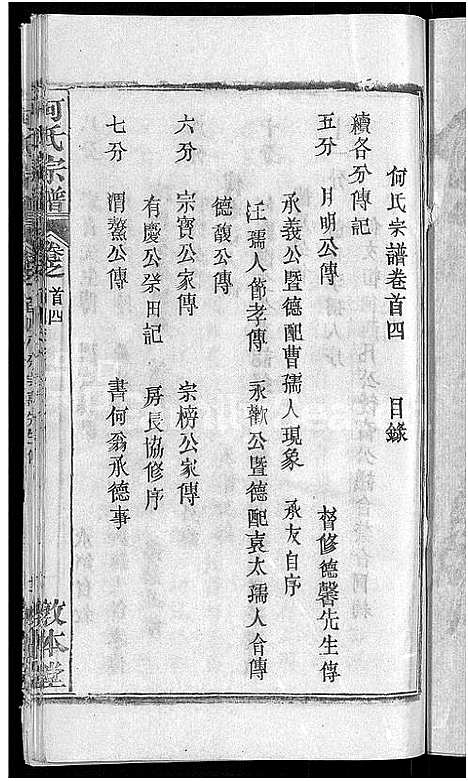 何氏宗譜卷首四 目錄
續各分傳記
五分 月明公傳 督修德馨先生傳
承義公暨德配曹孺人現象 承友自序
汪孺人節孝傳 永歡公暨德配袁太孺人合傳
德馥公傳
六分 宗寶公家傳 宗榜公家傳
有慶公祭田記 房長協修序
七分 渭鰲公傳 書何翁承德事
何氏宗譜 卷之首四 敦本堂